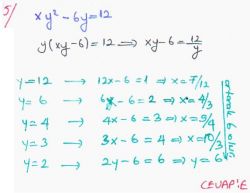 5/
xy² - 6y = 12
y(xy-6) = 12 ⟹ xy-6 = 12/y
y=12 → 12x-6=1 ⇒ x=7/12
y=6 → 6x-6=2 ⇒ x=4/3
y=4 → 4x-6=3 ⇒ x=9/4
y=3 → 3x-6=4 ⇒ x=10/3
y=2 → 2y-6=6 ⇒ y=6
CEVAP E